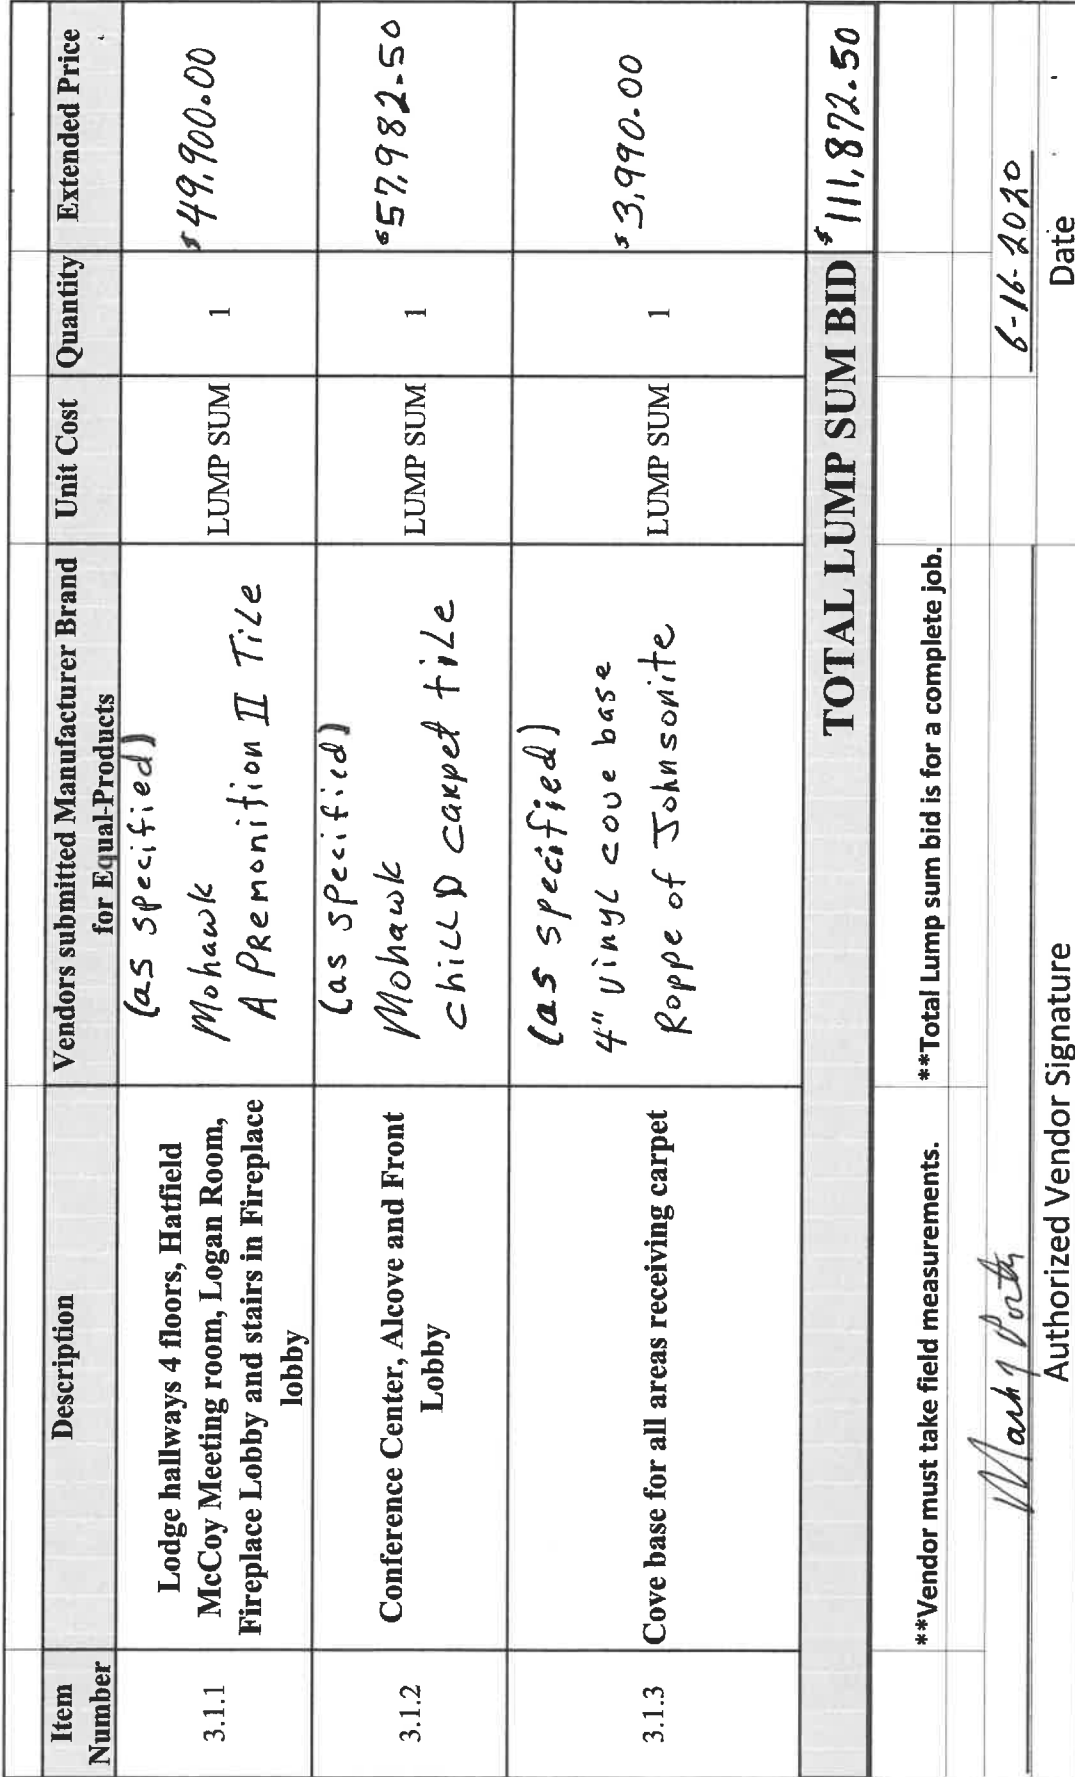 Item Number
Description
Vendors submitted Manufacturer Brand for Equal-Products
Unit Cost
Quantity
Extended Price
3.1.1
Lodge hallways 4 floors, Hatfield
McCoy Meeting room, Logan Room,
Fireplace Lobby and stairs in Fireplace
lobby
(as specified)
Mohawk
A PRemonition II TiLe
LUMP SUM
1
$49,900.00
3.1.2
Conference Center, Alcove and Front
Lobby
(as specified)
Mohawk
chiLLD caRpet tiLe
LUMP SUM
1
$57,982.50
3.1.3
Cove base for all areas receiving carpet
(as specified)
4" vinyL cove base
Roppe of Johnsonite
LUMP SUM
1
$3,990.00
TOTAL LUMP SUM BID
$111,872.50
**Vendor must take field measurements.
**Total Lump sum bid is for a complete job.
6-16-2020
Authorized Vendor Signature
Date